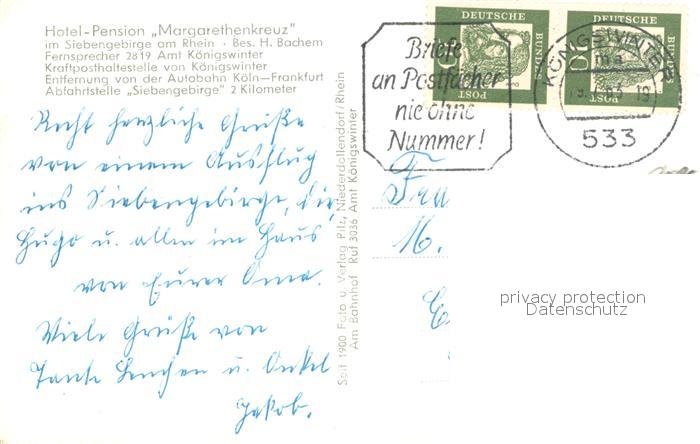 Hotel-Pension „Margarethenkreuz"
im Siebengebirge am Rhein · Bes. H. Bachem
Fernsprecher 2819 Amt Königswinter
Kraftposthaltestelle von Königswinter
Entfernung von der Autobahn Köln—Frankfurt
Abfahrtstelle „Siebengebirge" 2 Kilometer
Recht herzliche Grüße
von einem Ausflug
ins Siebengebirge, dir,
Hugo u. allen im Haus
von Eurer Oma.
Viele Grüße von
Tante Lenchen u. Onkel
Jakob.
Seit 1900 Foto u. Verlag Pilz, Niederdollendorf/Rhein
Am Bahnhof Ruf 3036 Amt Königswinter
Briefe
an Postfächer
nie ohne
Nummer!
DEUTSCHE
BUNDES
POST
10
DEUTSCHE
BUNDES
POST
10
KÖNIGSWINTER
533
Fra
M.
E
privacy protection
Datenschutz